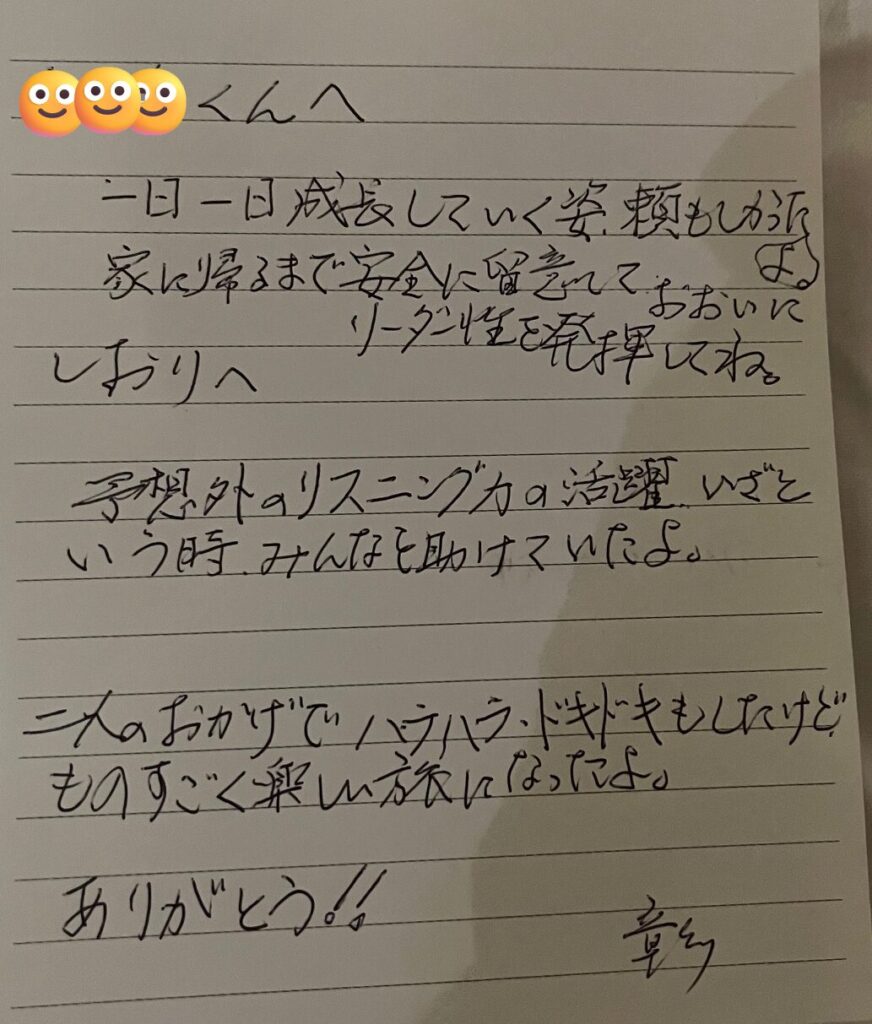 くんへ
一日一日成長していく姿、頼もしかった
よ。
家に帰るまで安全に留意して、おおいに
リーダー性を発揮してね。
しおりへ
予想外のリスニング力の活躍、いざと
いう時、みんなを助けていたよ。
二人のおかげで ハラハラ・ドキドキもしたけど
ものすごく楽しい旅になったよ。
ありがとう!!